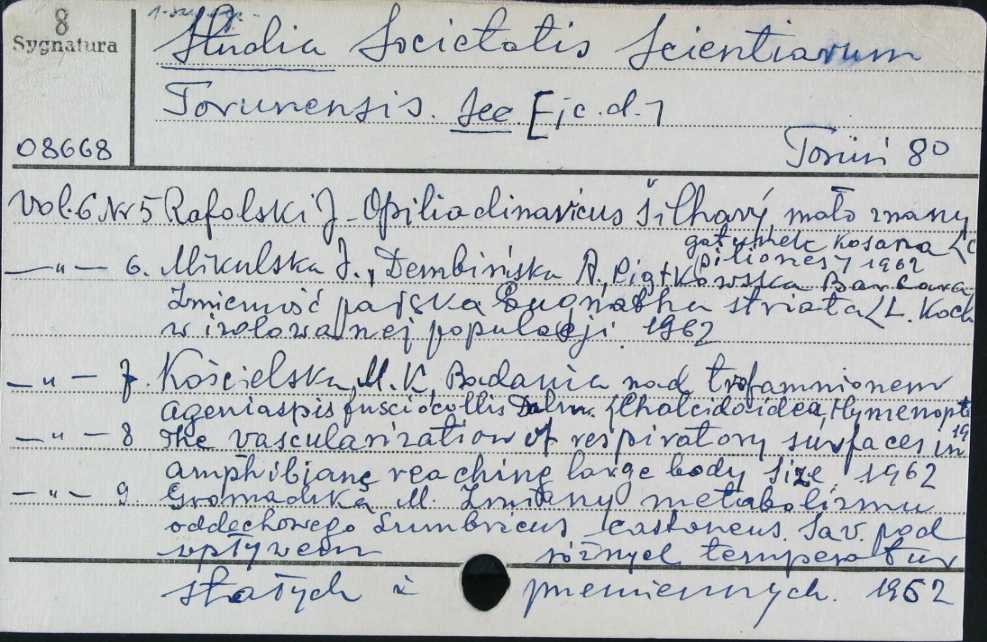 8
Sygnatura
Studia Societatis Scientiarum
Torunensis. See E [c.d.]
08668
Toruń 80
Vol. 6 Nr 5 Rafolski J - Opilio dinavicus Šilhavý, mało znany
gatunek kosarza (O
piliones) 1962
—"— 6. Mikulska J., Dembińska A. Piątkowska Barbara
Zmienność pająka Eugnatha striata (L. Koch
w izolowanej populacji. 1962
—"— 7. Kościelska M. K. Badania nad trofamnionem
Ageniaspis fuscicollis Dalm. (Chalcidoidea, Hymenopt
—"— 8 The vascularization of respiratory surfaces in
amphibians reaching large body size, 1962
—"— 9. Gromadska M. Zmiany metabolizmu
oddechowego Lumbricus castaneus Sav. pod
wpływem różnych temperatur
stałych i zmiennych. 1962